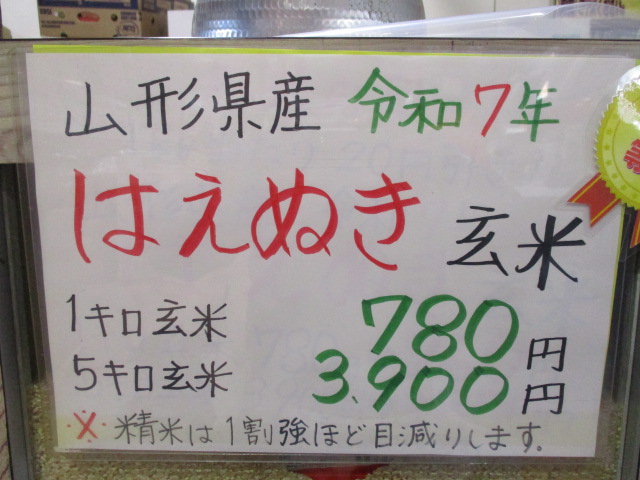 山形県産 令和7年
はえぬき 玄米
1キロ玄米 780円
5キロ玄米 3,900円
※精米は1割強ほど目減りします。